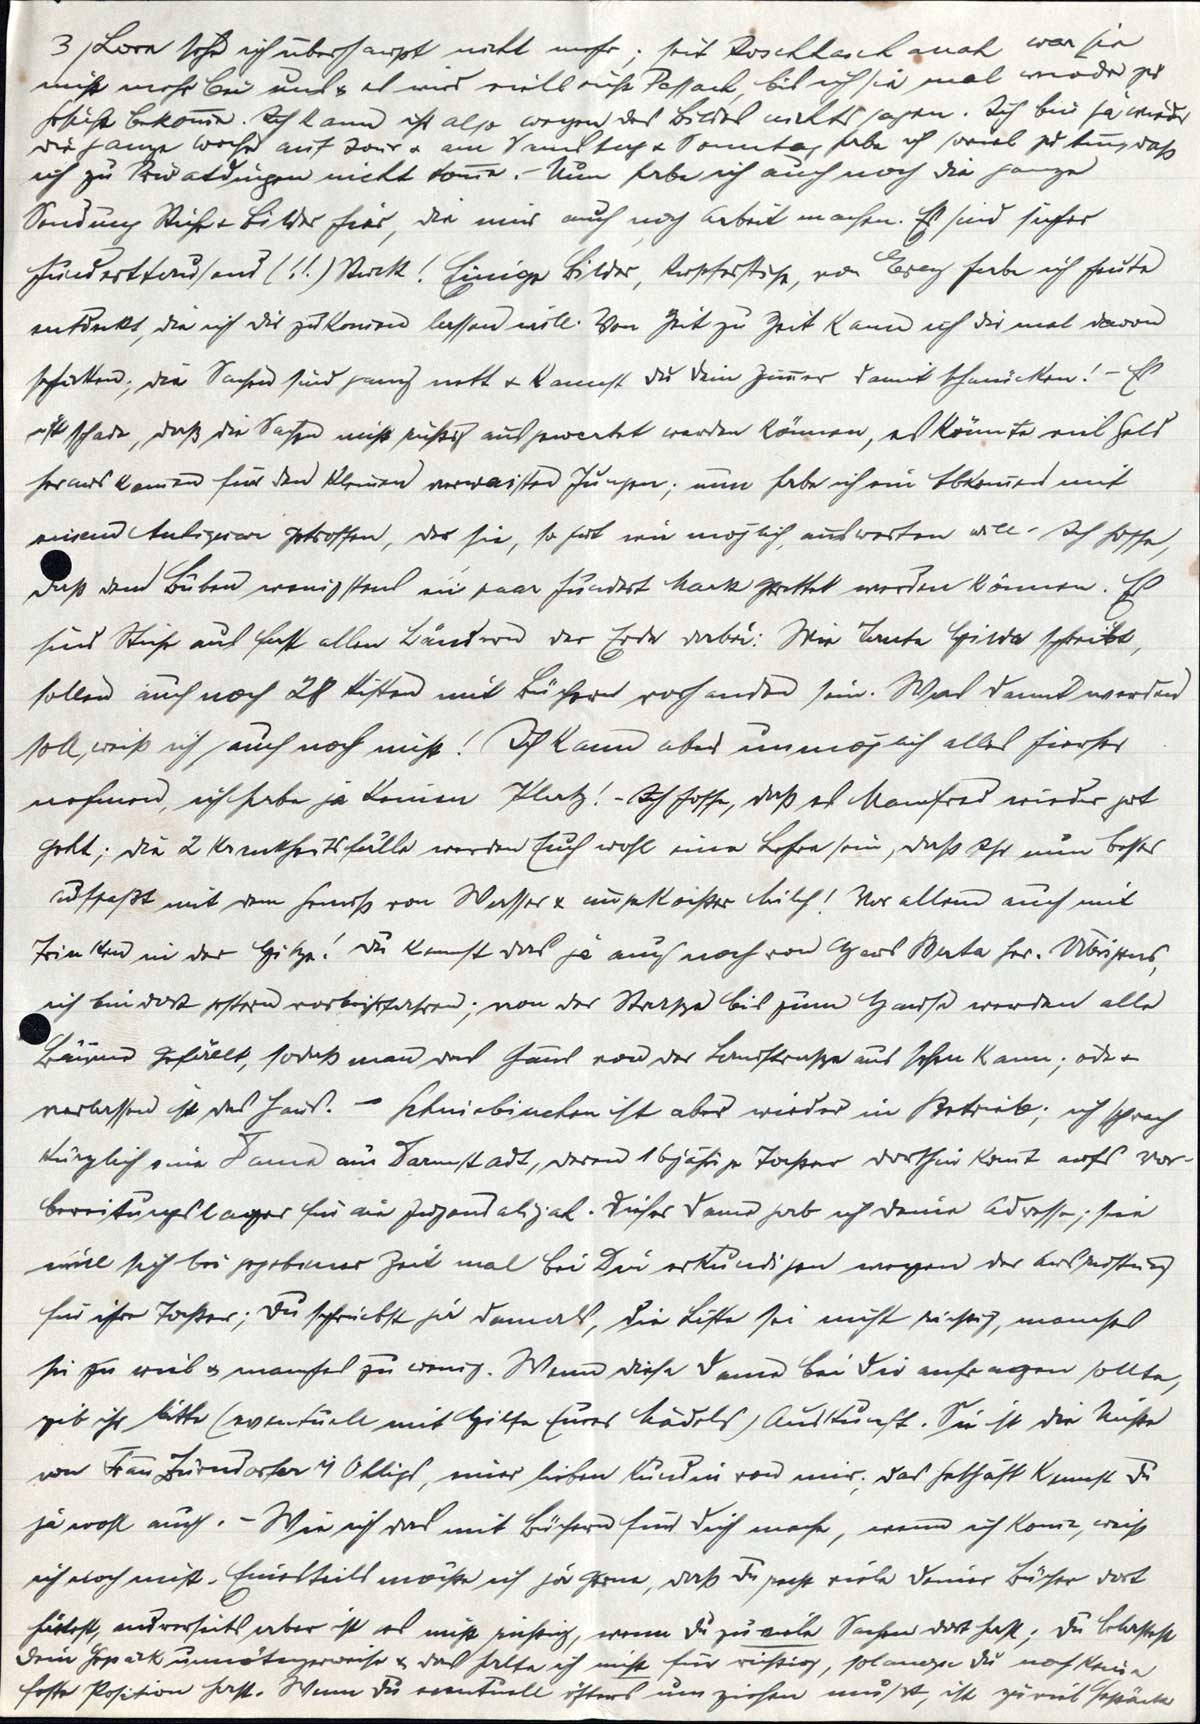 3) Lore sehe ich überhaupt nicht mehr; seit Roschhaschanah war sie
nicht mehr bei uns & es wird vielleicht Pessach, bis ich sie mal wieder zu
Gesicht bekomme. Ich kann ihr also wegen des Bildes nichts sagen. Ich bin ja wieder
die ganze Woche auf Tour & am Samstag & Sonntag habe ich soviel zu tun, daß
ich zu Privatdingen nicht komme. – Nun habe ich auch noch die ganze
Sendung Stiche & Bilder hier, die mir auch noch Arbeit machen. Es sind sicher
hunderttausend (!!) Stück! Einige Bilder, Kupferstiche, von Erez habe ich heute
entdeckt, die ich Dir zukommen lassen will. Von Zeit zu Zeit kann ich Dir mal davon
schicken; die Sachen sind ganz nett & kannst Du Dein Zimmer damit schmücken! – Es
ist schade, daß die Sachen nicht richtig ausgewertet werden können, es könnte viel Geld
herauskommen für den kleinen verwaisten Jungen; nun habe ich ein Abkommen mit
einem Antiquar getroffen, der sie, so gut wie möglich, auswerten will. Ich hoffe,
daß dem Buben wenigstens ein paar hundert Mark gerettet werden können. Es
sind Stiche aus fast allen Ländern der Erde dabei: Wie Tante Gilda schreibt,
sollen auch noch 28 Kisten mit Büchern vorhanden sein. Was damit werden
soll, weiß ich auch noch nicht! Ich kann aber unmöglich alles hierher
nehmen, ich habe ja keinen Platz! – Ich hoffe, daß es Manfred wieder gut
geht; die 2 Krankheitsfälle werden Euch wohl eine Lehre sein, daß Ihr nun besser
aufpaßt mit dem Genuß von Wasser & ungekochter Milch! Vor allem auch mit
Trinken in der Hitze! Du kennst das ja auch noch von Haus Berta her. Übrigens,
ich bin dort gestern vorbeigefahren; von der Strasse bis zum Hause werden alle
Bäume gefällt, sodaß man das Haus von der Landstrasse aus sehen kann; öde &
verlassen ist das Haus. – Schniebinchen ist aber wieder in Betrieb; ich sprach
kürzlich eine Dame aus Darmstadt, deren 16jährige Tochter dorthin kommt aufs Vor-
bereitungslager für die Jugendalijah. Dieser Dame gab ich Deine Adresse; sie
will sich bei gegebener Zeit mal bei Dir erkundigen wegen der Ausrüstung
für ihre Tochter; Du schriebst ja damals, die Liste sei nicht richtig, manches
sei zu viel & manches zu wenig. Wenn diese Dame bei Dir anfragen sollte,
gib ihr bitte (eventuell mit Hilfe Eures Mädels) Auskunft. Sie ist die Nichte
von Frau Zürndorfer Ohligs, einer lieben Kundin von mir; das Geschäft kennst Du
ja wohl auch. – Wie ich das mit Büchern für Dich mache, wenn ich komme, weiß
ich noch nicht. Einesteils möchte ich ja gerne, daß Du recht viele Deiner Bücher dort
hättest, andererseits aber ist es nicht richtig, wenn Du zuviele Sachen dort hast; Du belastest
Dein Gepäck unnötigerweise & das halte ich nicht für richtig, solange Du noch keine
feste Position hast. Wenn Du eventuell öfters umziehen mußt, ist zuviel Gepäck